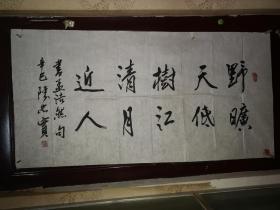 野曠
天低
樹江
清月
近人
書孟浩然句
辛巳陳忠實